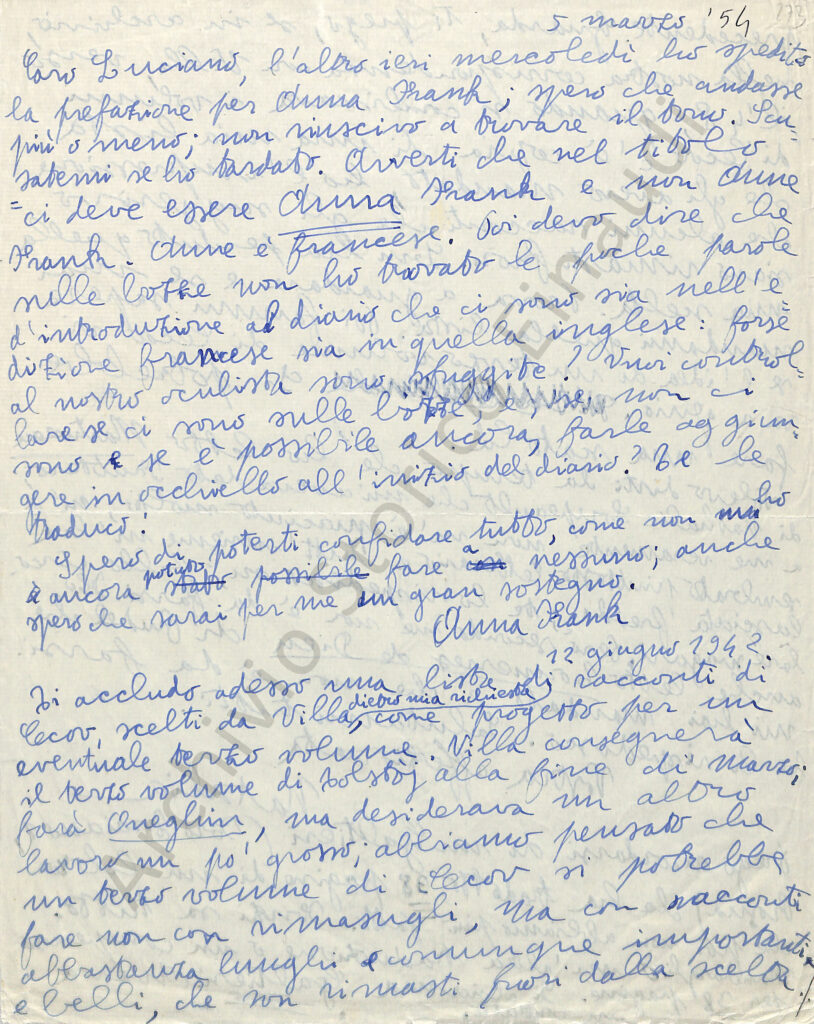 5 marzo '54
223
Caro Luciano, l'altro ieri mercoledì ho spedito
la prefazione per Anna Frank; spero che andasse
più o meno; non riuscivo a trovare il tono. Scu-
satemi se ho tardato. Avverti che nel titolo
ci deve essere Anna Frank e non Anne
Frank. Anne è francese. Poi devo dire che
sulle bozze non ho trovato le poche parole
d'introduzione al diario che ci sono sia nell'e=
dizione francese sia in quella inglese: forse
al nostro oculista sono sfuggite? Vuoi control=
lare se ci sono sulle bozze, e, se non ci
sono e se è possibile ancora, farle aggiun=
gere in occhiello all'inizio del diario? Te le
traduco:
Spero di poterti confidare tutto, come non ho
ancora potuto stato possibile fare a con nessuno; anche
spero che sarai per me un gran sostegno.
Anna Frank
12 giugno 1942.
Ti accludo adesso una lista di racconti di
Cecov, scelti da Villa, dietro mia richiesta, come progetto per un
eventuale terzo volume. Villa consegnerà
il terzo volume di Tolstòj alla fine di marzo;
farà Oneghin, ma desiderava un altro
lavoro un po' grosso; abbiamo pensato che
un terzo volume di Cecov si potrebbe
fare non con rimasugli, ma con racconti
abbastanza lunghi e comunque importanti
e belli, che son rimasti fuori dalla scelta.
Archivio Storico Einaudi